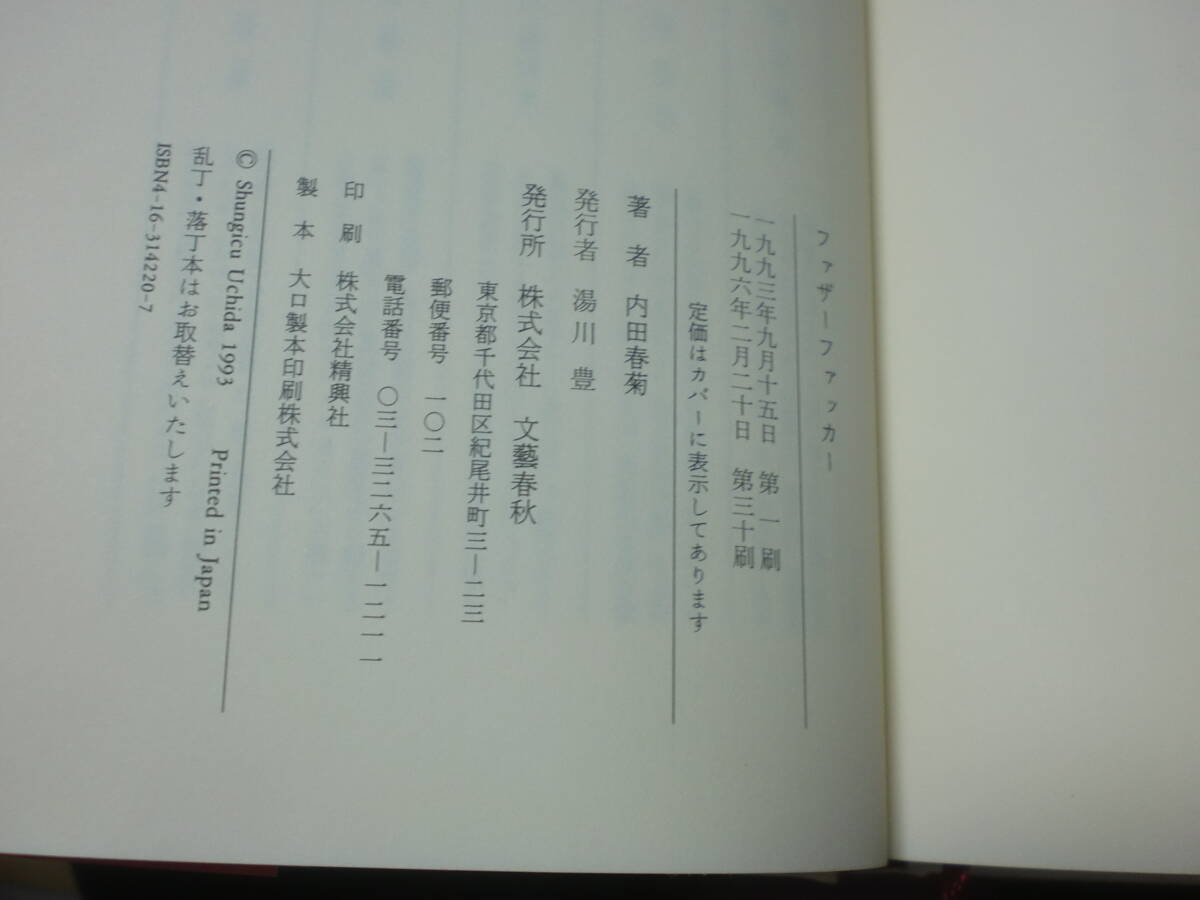 ファザーファッカー
一九九三年九月十五日　第一刷
一九九六年二月二十日　第三十刷
定価はカバーに表示してあります
著者　内田春菊
発行者　湯川　豊
発行所　株式会社　文藝春秋
東京都千代田区紀尾井町三―二三
郵便番号　一〇二
電話番号　〇三―三二六五―一二一一
印刷　株式会社精興社
製本　大口製本印刷株式会社
© Shungicu Uchida 1993　Printed in Japan
乱丁・落丁本はお取替えいたします
ISBN4-16-314220-7